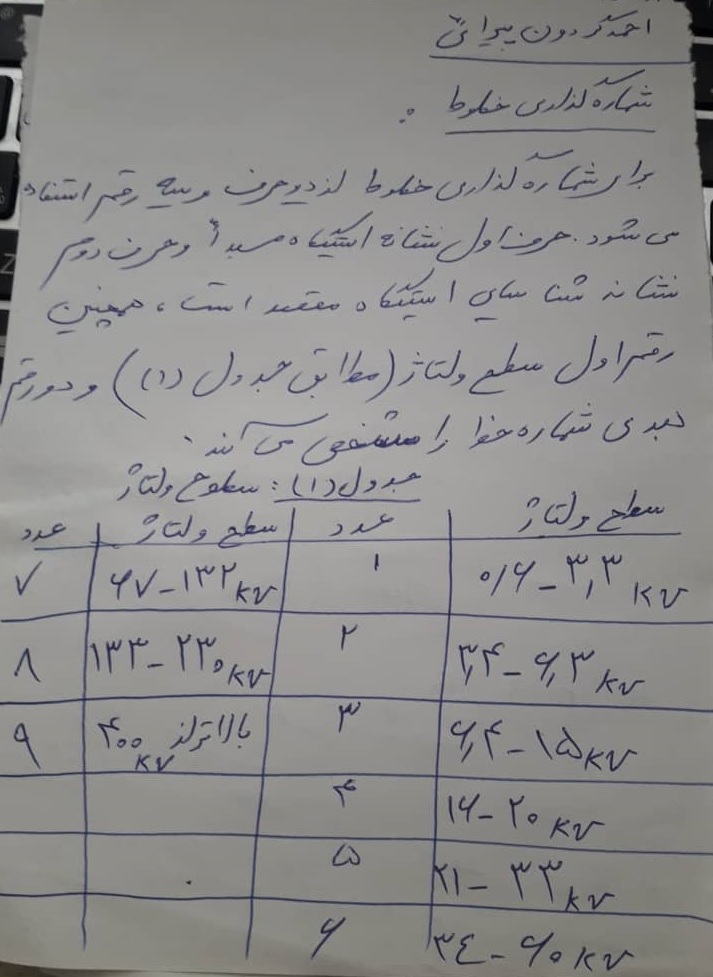 احمد گردون پیرائی
شماره گذاری خطوط :
برای شماره گذاری خطوط از دو حرف و سه رقم استفاده
می شود. حرف اول نشانه ایستگاه مبدأ و حرف دوم
نشانه شناسایی ایستگاه مقصد است، همچنین
رقم اول سطح ولتاژ (مطابق جدول (۱)) و دو رقم
بعدی شماره خط را مشخص می کند.
جدول (۱): سطوح ولتاژ
سطح ولتاژ | عدد | سطح ولتاژ | عدد
۰/۶ – ۳,۳ kv | ۱ | ۶۷ – ۱۳۲ kv | ۷
۳,۴ – ۶,۳ kv | ۲ | ۱۳۳ – ۲۳۰ kv | ۸
۶,۴ – ۱۵ kv | ۳ | بالاتر از ۴۰۰ kv | ۹
۱۶ – ۲۰ kv | ۴
۲۱ – ۳۳ kv | ۵
۳٤ – ۶۰ kv | ۶